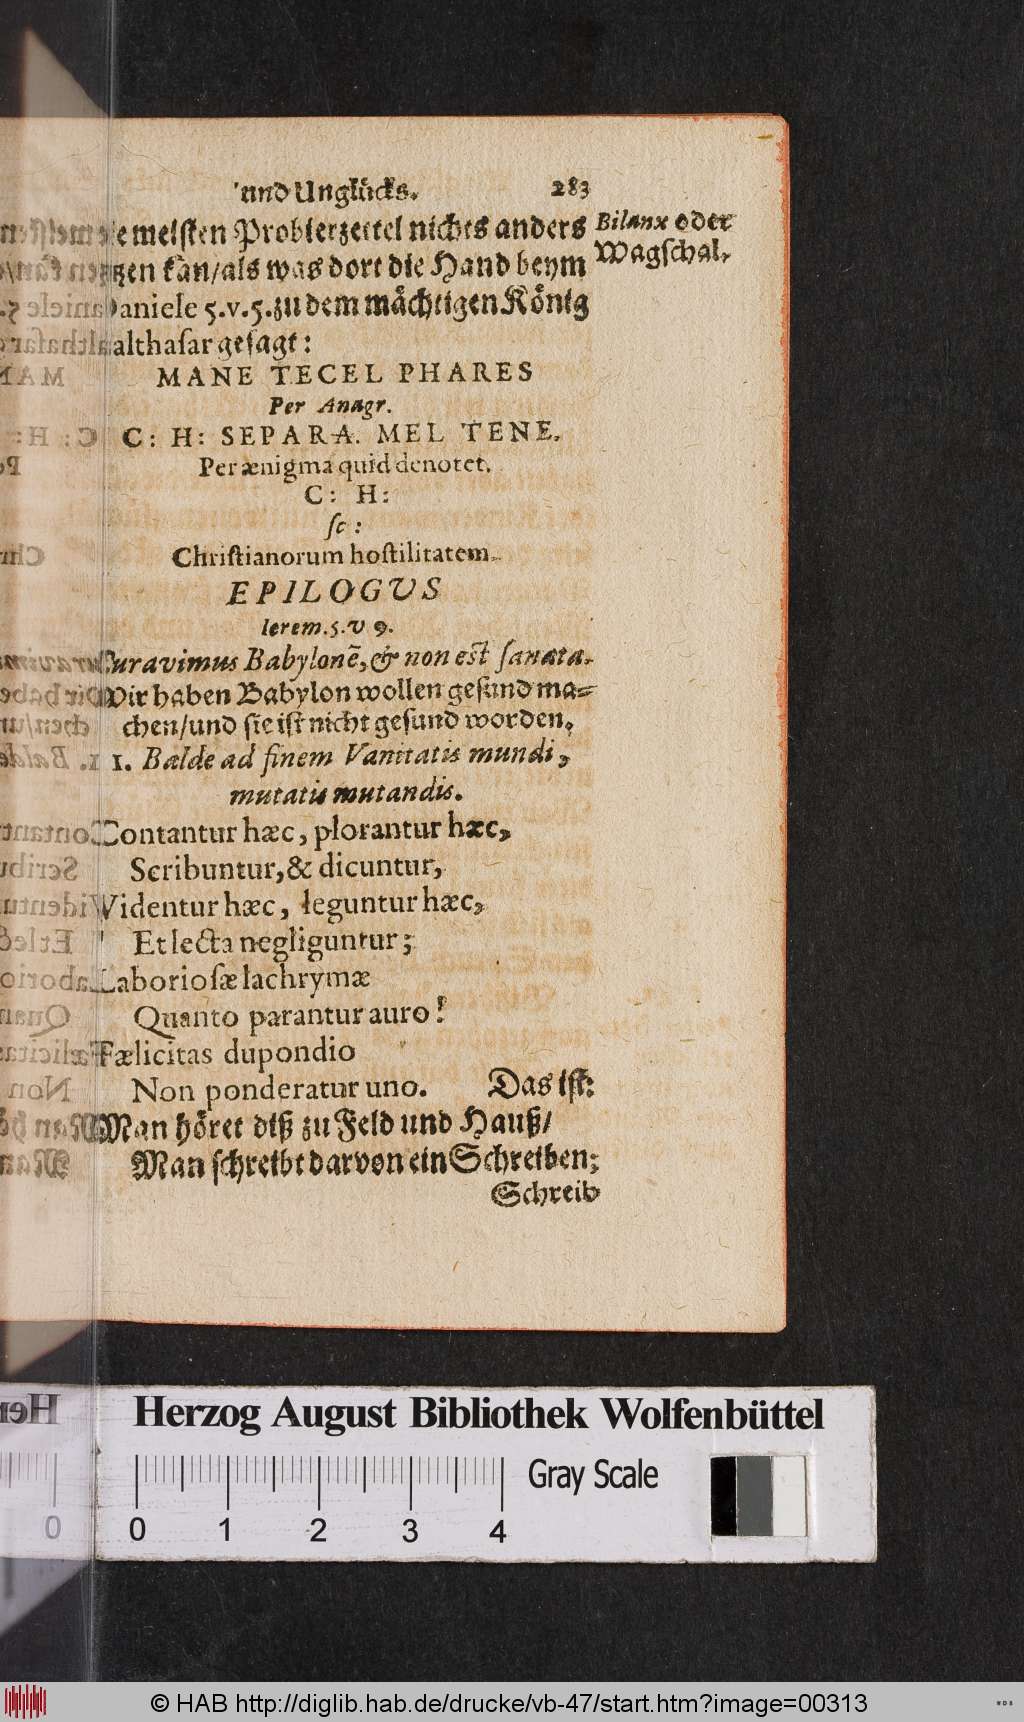 und Unglücks. 283
meisten Probierzettel nichts anders
Bilanx oder
Wagschal.
kån/als was dort die Hand beym
Daniele 5.v.5. zu dem mächtigen König
althaſar geſagt:
MANE TECEL PHARES
Per Anagr.
C: H: SEPARA. MEL TENE.
Per ænigma quid denotet.
C: H:
ſc:
Chriſtianorum hoſtilitatem.
EPILOGVS
Ierem. 5. v 9.
Curavimus Babylonē, & non eſt ſanata.
Wir haben Babylon wollen geſund ma⸗
chen/und ſie iſt nicht geſund worden.
1. Balde ad finem Vanitatis mundi,
mutatis mutandis.
Contantur hæc, plorantur hæc,
Scribuntur, & dicuntur,
Videntur hæc, leguntur hæc,
Et lecta negliguntur;
Laborioſæ lachrymæ
Quanto parantur auro!
Fælicitas dupondio
Non ponderatur uno. Das iſt:
Man höret diß zu Feld und Hauß/
Man ſchreibt darvon ein Schreiben;
Schreib
Herzog August Bibliothek Wolfenbüttel
Gray Scale
0 1 2 3 4
© HAB http://diglib.hab.de/drucke/vb-47/start.htm?image=00313